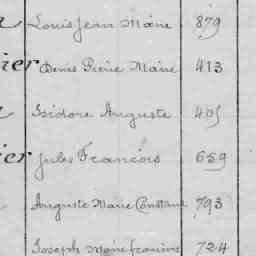 Louis Jean Marie 879
ier Denis Pierre Marie 413
Isidore Auguste 405
ier Jules François 659
Auguste Marie Constant 793
Joseph Marie 724